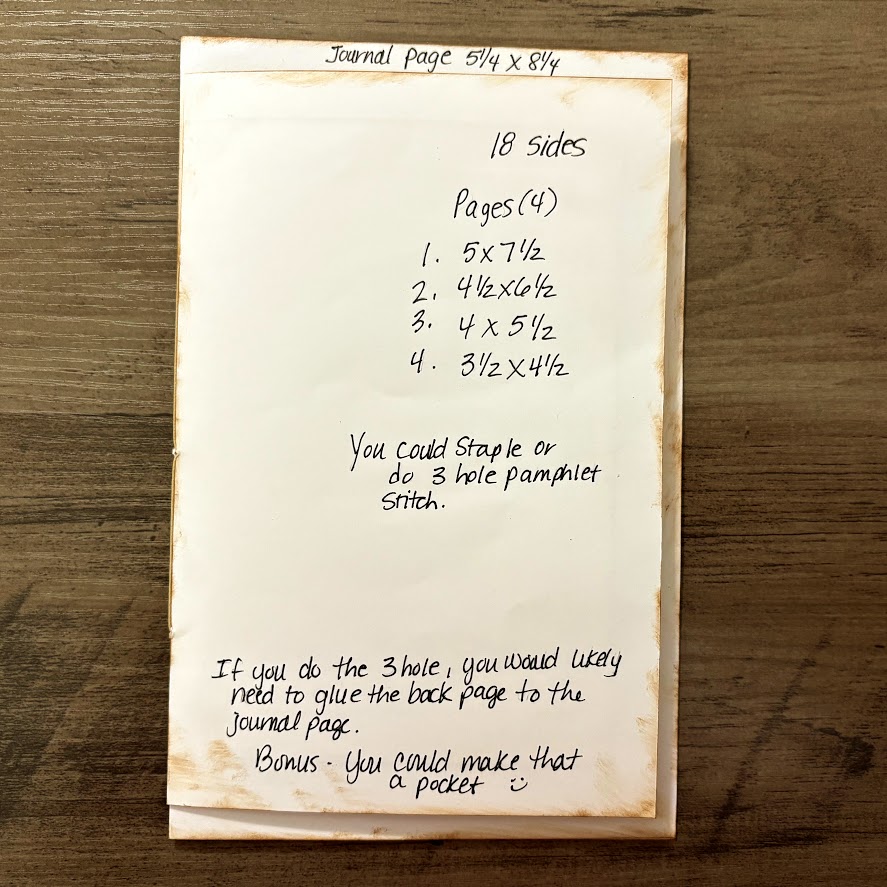 Journal page 5 1/4 x 8 1/4
18 sides
Pages (4)
1. 5 x 7 1/2
2. 4 1/2 x 6 1/2
3. 4 x 5 1/2
4. 3 1/2 x 4 1/2
You could Staple or
do 3 hole pamphlet
Stitch.
If you do the 3 hole, you would likely
need to glue the back page to the
journal page.
Bonus - You could make that
a pocket